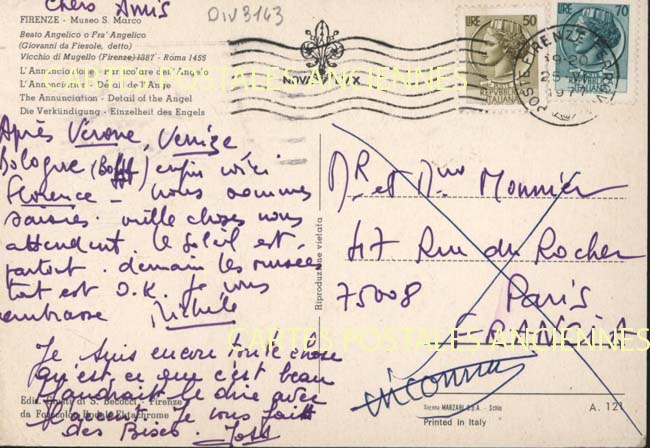 Chers Amis
DIV3143
FIRENZE - Museo S. Marco
Beato Angelico o Fra' Angelico
(Giovanni da Fiesole, detto)
Vicchio di Mugello (Firenze) 1387 - Roma 1455
L'Annunciazione - Particolare dell'Angelo
L'Annonciation - Détail de l'Ange
The Annunciation - Detail of the Angel
Die Verkündigung - Einzelheit des Engels
Après Verone, Venize
Bologne enfin voici
Florence - nous sommes
saisies. mille choses nous
attendent. le soleil est
partout. demain les musées
tout est O.K. Je vous
embrasse Michèle
Je suis encore toute chose
qu'est ce que c'est beau
faudrait le dire avec
l'accent. Je vous fait
des Bises.
Riproduzione vietata
LIRE 50
LIRE 70
REPUBBLICA
ITALIANA
FIRENZE FERROVIA
19-20
Mr et Mme Monnier
47 Rue du Rocher
75008 Paris
FRANCIA
inconnu
CARTES POSTALES ANCIENNES
CARTES POSTALES ANCIENNES
Ediz. Giusti di S. Becocci - Firenze
da Fotocolor Kodak Ektachrome
MARZARI S.p.A. - Schio
Printed in Italy
A. 121